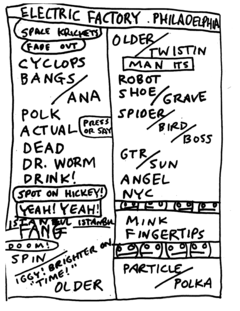 ELECTRIC FACTORY . PHILADELPHIA
SPACE KRICKETS
FADE OUT
CYCLOPS
BANGS/
ANA
POLK
ACTUAL
PRESS
OR SAY
DEAD
DR. WORM
DRINK!
SPOT ON HICKEY!
YEAH! YEAH!
ISTANBUL ISTANBUL
FANG
DOOM!
SPIN
IGGY! BRIGHTER ON
"TIME!"
OLDER
OLDER/
TWISTIN
MAN ITS
ROBOT
SHOE/
GRAVE
SPIDER/
BIRD/
BOSS
GTR/
SUN
ANGEL
NYC
MINK
FINGERTIPS
PARTICLE/
POLKA